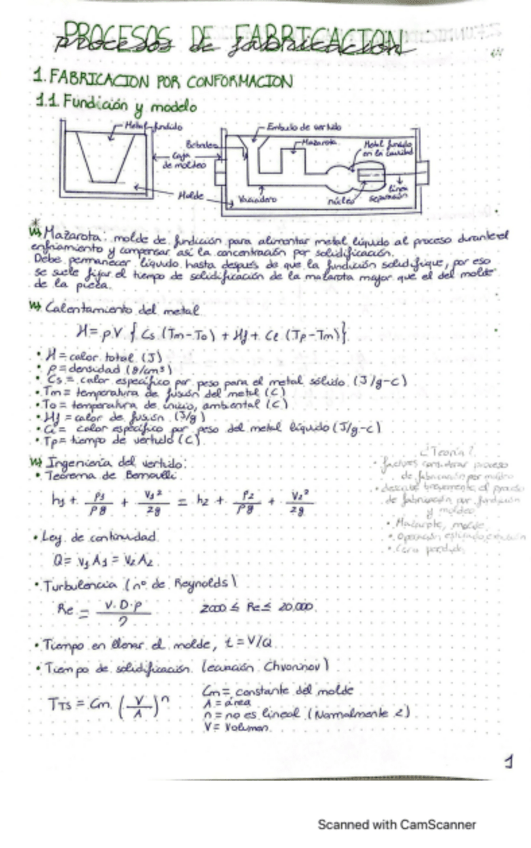 PROCESOS DE FABRICACION
procesos de fabricacion
1. FABRICACION POR CONFORMACION
1.1. Fundición y modelo
Metal fundido
Embudo de vertido
Bebedero
Mazarota
Metal fundido
en la cavidad
Caja
de moldeo
Molde
Vaciadero
núcleo
línea
separación
Mazarota: molde de fundición para alimentar metal líquido al proceso durante el
enfriamiento y compensar así la concentración por solidificación.
Debe permanecer líquido hasta después de que la fundición solidifique, por eso
se suele fijar el tiempo de solidificación de la mazarota mayor que el del molde
de la pieza.
Calentamiento del metal
H = ρV {Cs (Tm-To) + Hf + Cl (Tp-Tm)}
• H = calor total (J)
• ρ = densidad (g/cm³)
• Cs = calor específico por peso para el metal sólido (J/g-C)
• Tm = temperatura de fusión del metal (C)
• To = temperatura de inicio, ambiental (C)
• Hf = calor de fusión (J/g)
• Cl = calor específico por peso del metal líquido (J/g-C)
• Tp = tiempo de vertido (C)
Ingeniería del vertido:
• Teorema de Bernoulli:
h1 + P1/ρg + V1²/2g = h2 + P2/ρg + V2²/2g
¿Teoría?
• factores considerar proceso
de fabricación por moldeo
• describir brevemente el proceso
de fabricación por fundición
y moldeo
• Mazarota, molde
• Ley de continuidad
Q = V1 A1 = V2 A2
• Turbulencia (nº de Reynolds)
Re = V·D·ρ/η 2000 ≤ Re ≤ 20,000
• Tiempo en llenar el molde, t = V/Q
• Tiempo de solidificación (ecuación Chvorinov)
TTS = Cm (V/A)ⁿ
Cm = constante del molde
A = área
n = no es lineal (Normalmente 2)
V = Volumen
1
Scanned with CamScanner